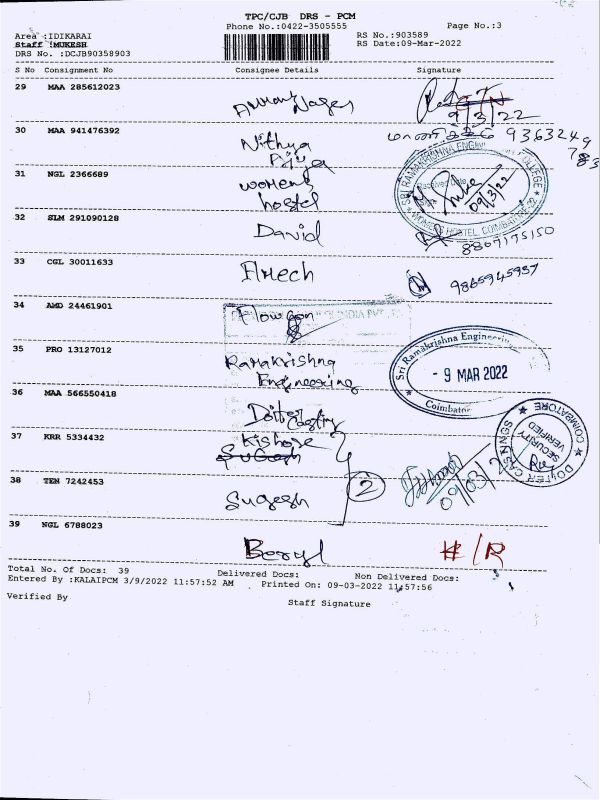 TPC/CJB DRS - PCM
Phone No.:0422-3505555
Page No.:3
Area :IDIKARAI
RS No.:903589
Staff :MUKESH
RS Date:09-Mar-2022
DRS No. :DCJB90358903
S No Consignment No Consignee Details Signature
29 MAA 285612023
9/3/22
30 MAA 941476392 Nithya Priya 9363249
783
31 NGL 2366689 womens hostel
SRI RAMAKRISHNA ENGINEERING COLLEGE
WOMENS HOSTEL, COIMBATORE-22
09/3/22
32 SLM 291090128 David
8807175150
33 CGL 30011633
9865945957
34 AMD 24461901 Flowcon
INDIA PVT
35 PRO 13127012 Ramakrishna Engineering
Sri Ramakrishna Engineering
- 9 MAR 2022
Coimbator
36 MAA 566550418
DOITER CASTINGS
COIMBATORE
SECURITY
VERIFIED
37 KRR 5334432 Kishore
38 TEN 7242453 Sugesh
2
09/03/2
39 NGL 6788023 Beryl
Total No. Of Docs: 39 Delivered Docs: Non Delivered Docs:
Entered By :KALAIPCM 3/9/2022 11:57:52 AM Printed On: 09-03-2022 11:57:56
Verified By
Staff Signature